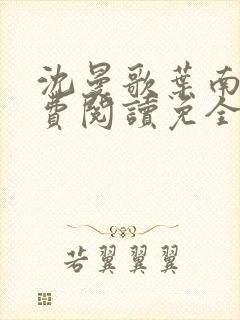 沈曼歌葉南
費閱讀免全
若翼翼翼